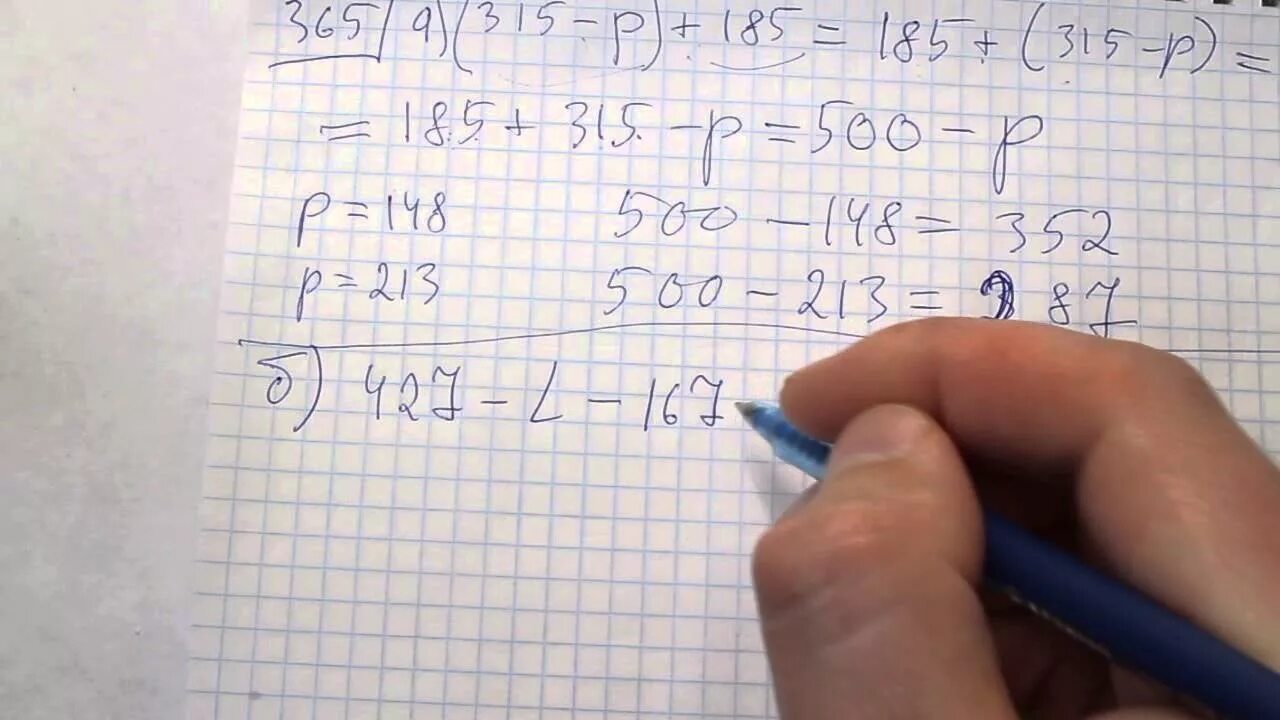 365 а) (315 - p) + 185 = 185 + (315 - p) =
= 185 + 315 - p = 500 - p
p = 148 500 - 148 = 352
p = 213 500 - 213 = 287
б) 427 - L - 167